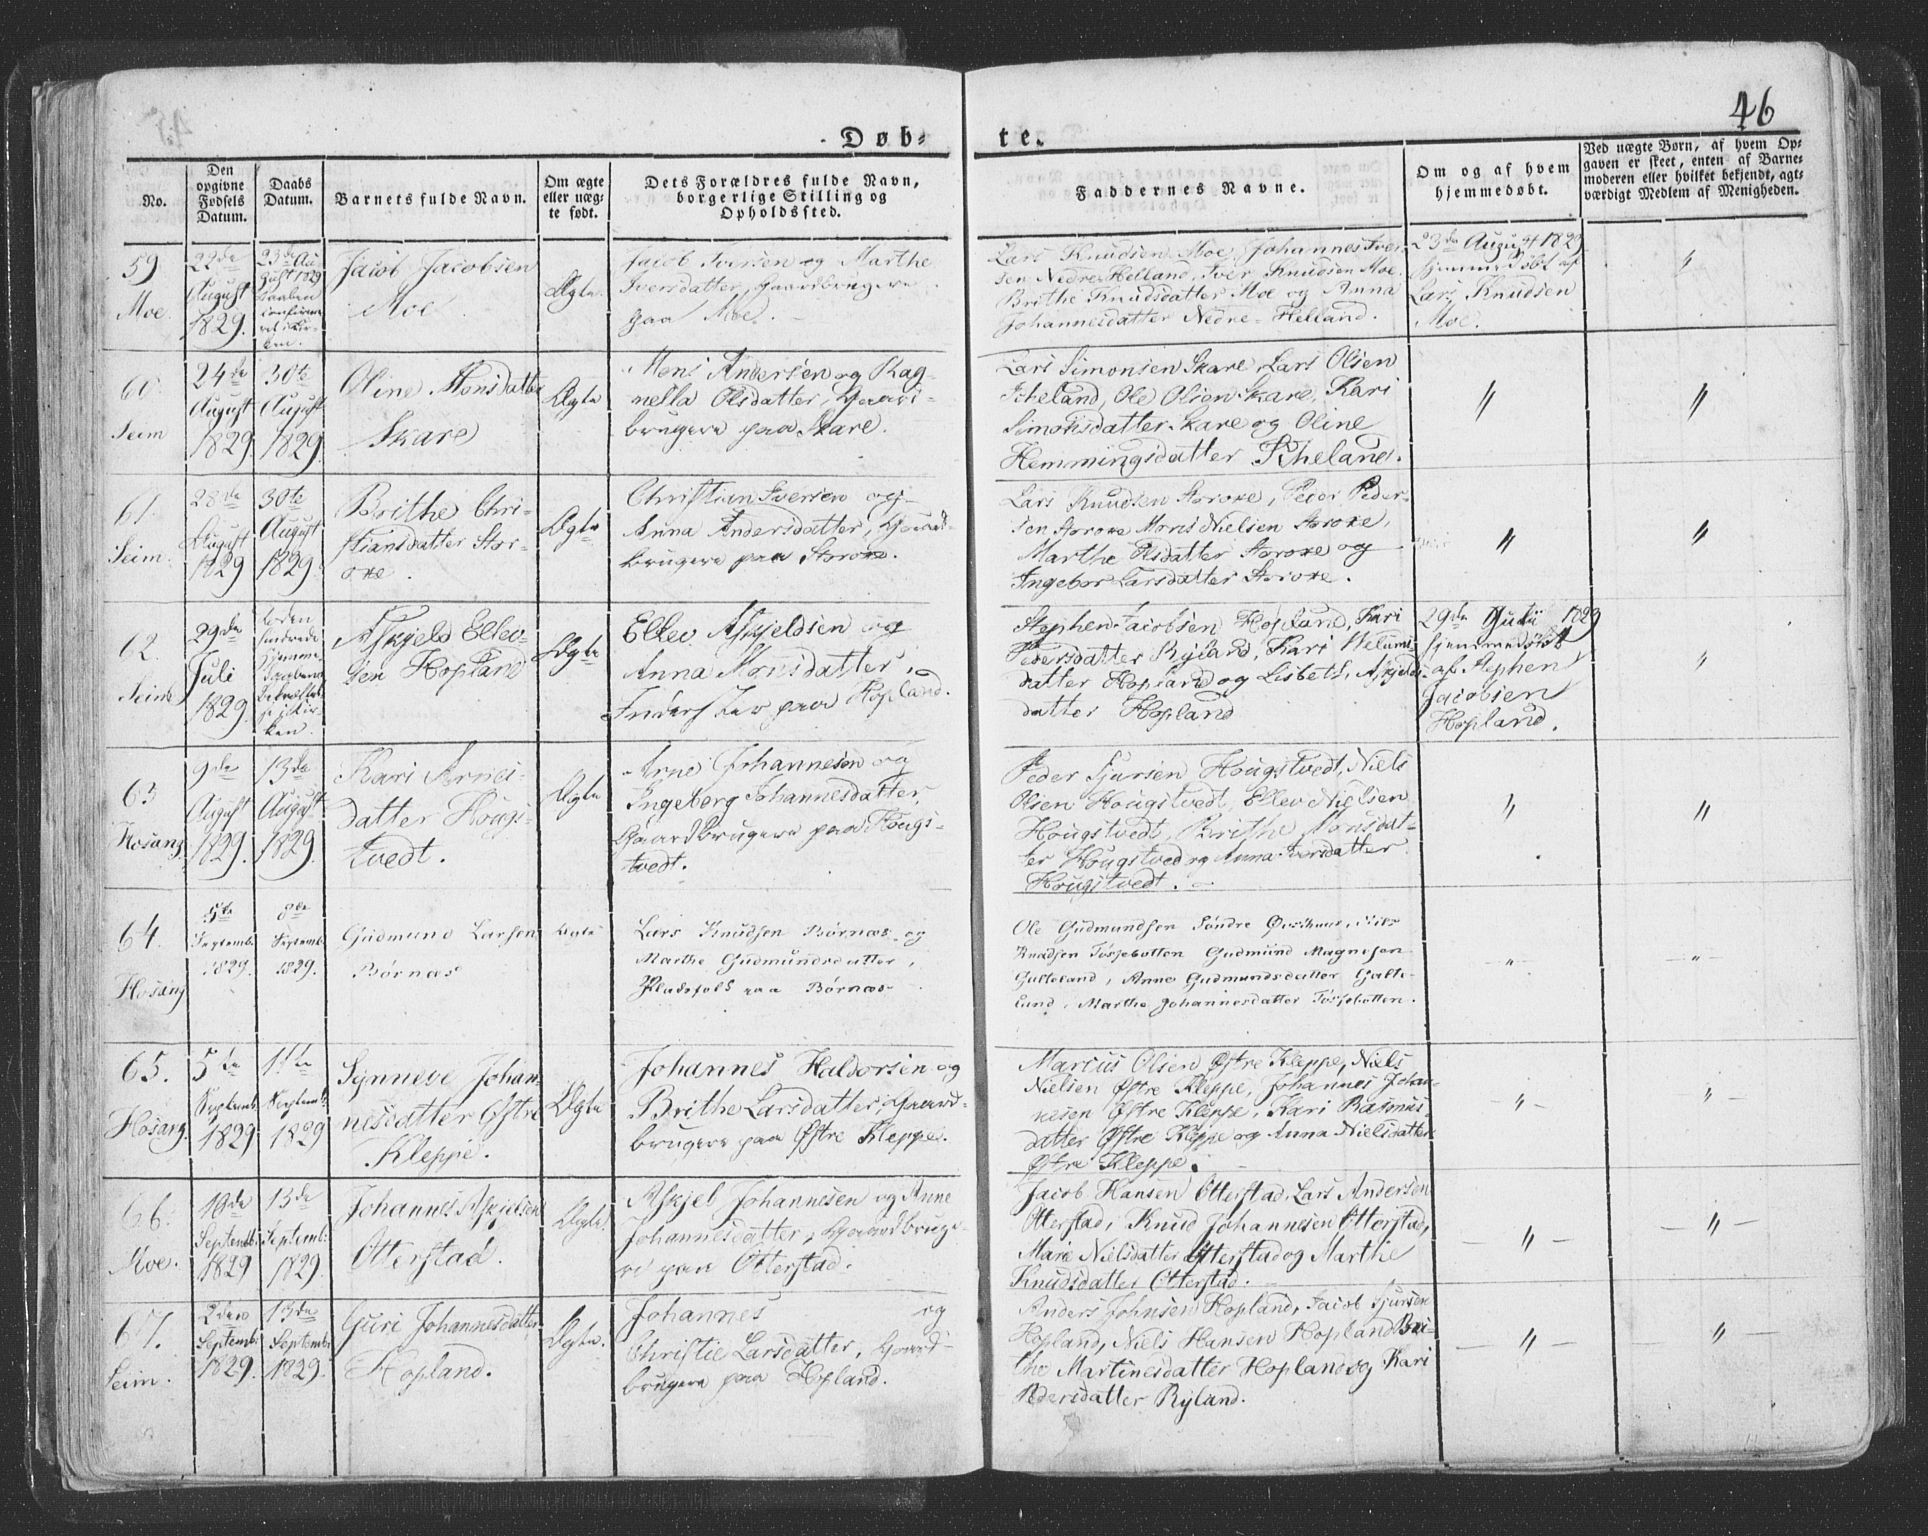 46
Døb-
te.
No.
Den
opgivne
Fødsels
Datum.
Daabs
Datum.
Barnets fulde Navn.
Om ægte
eller uæg-
te født.
Dets Forældres fulde Navn,
borgerlige Stilling og
Opholdssted.
Faddernes Navne.
Om og af hvem
hjemmedøbt.
Ved uægte Børn, af hvem Op-
gaven er skeet, enten af Barne-
moderen eller hvilket bekjendt, agt-
værdigt Medlem af Menigheden.
59.
Moe.
22de
August
1829.
23de Au-
gust 1829
Daaben
confirme-
ret i Kir-
ken.
Jacob Jacobsen
Moe
Ægte
Jacob Iversen og Marthe
Iversdatter, Gaardbrugere
paa Moe.
Lars Knudsen Moe, Johannes Iver-
sen Nedre-Helland, Iver Knudsen Moe
Brithe Knudsdatter Moe og Anna
Johannesdatter Nedre-Helland.
23de August 1829
hjemmedøbt af
Lars Knudsen
Moe.
"
60.
Seim
24de
August
1829
30te
August
1829.
Oline Monsdatter
Skare
Ægte
Mons Andersen og Rag-
nella Olsdatter, Gaard-
brugere paa Skare.
Lars Simonsen Skare, Lars Olsen
Ole Olsen Skare, Kari
Simonsdatter Skare og Oline
Hemmingsdatter
"
"
61.
Seim.
28de
August
1829
30te
August
1829.
Brithe Chri-
stiansdatter Stor-
oxe.
Ægte
Christian Iversen og
Anna Andersdatter, Gaard-
brugere paa Storoxe.
Lars Knudsen Storoxe, Peder Peder-
sen Storoxe Mons Nielsen Storoxe,
Marthe Olsdatter Storoxe og
Ingebor Larsdatter Storoxe.
"
"
62.
Seim
29de
Juli
1829.
Askjeld Ellev-
sen Hopland
Ægte
Ellev Askjeldsen og
Anna Monsdatter,
Inderster paa Hopland.
Stephen Jacobsen Hopland, Kari
Pedersdatter Ryland, Kari
datter Hopland og Lisbeth Askjelds-
datter Hopland
29de Julii 1829
hjemmedøbt
af Stephen
Jacobsen
Hopland.
"
63.
Hosang.
9de
August
1829.
13de
August
1829.
Kari Arnes-
datter Hougs-
tvedt.
Ægte
Arne Johannesen og
Ingeborg Johannesdatter,
Gaardbrugere paa Hougs-
tvedt.
Peder Sjursen Hougstvedt, Niels
Olsen Hougstvedt, Ellev Nielsen
Hougstvedt, Brithe Monsdat-
ter Hougstved og Anna Iversdatter
Hougstvedt.
"
"
64.
Hosang
5te
Septemb:
1829.
8de
Septemb:
1829.
Gudmund Larsen
Børnæs
Ægte
Lars Knudsen Børnæs og
Marthe Gudmundsdatter,
Pladsfolk paa Børnæs
Ole Gudmundsen Søndre Nils
Knudsen Tossebotten Gudmund Magnesen
Gulteland, Anne Gudmundsdatter Gulte-
lund, Marthe Johannesdatter Tossebotten.
"
"
65.
Hosang.
5te
Septemb:
1829
Septemb:
1829
Synneve Johan-
nesdatter Østre
Kleppe.
Ægte
Johannes Haldorsen og
Brithe Larsdatter, Gaard-
brugere paa Østre Kleppe.
Marcus Olsen Østre Kleppe, Niels
Nielsen Østre Kleppe, Johannes Johan-
nesen Østre Kleppe, Kari Rasmus-
datter Østre Kleppe og Anna Nielsdatter
Østre Kleppe.
"
"
66.
Moe.
10de
Septemb:
1829
13de
Septemb:
1829.
Johannes Askjelsen
Otterstad.
Ægte
Askjel Johannesen og Anne
Johannesdatter, Gaardbruge-
re paa Otterstad.
Jacob Hansen Otterstad, Lars Andersen
Otterstad, Knud Johannesen Otterstad,
Mare Nielsdatter Otterstad og Marthe
Knudsdatter Otterstad.
"
"
67.
Seim.
2den
Septemb:
1829.
13de
Septemb:
1829.
Guri Johannesdatter
Hopland.
Ægte.
Johannes og
Christie Larsdatter, Gaard-
brugere paa Hopland.
Anders Johnsen Hopland, Jacob Sjursen
Hopland, Niels Hansen Hopland Bri-
the Martinesdatter Hopland og Kari
Pedersdatter Ryland.
"
"